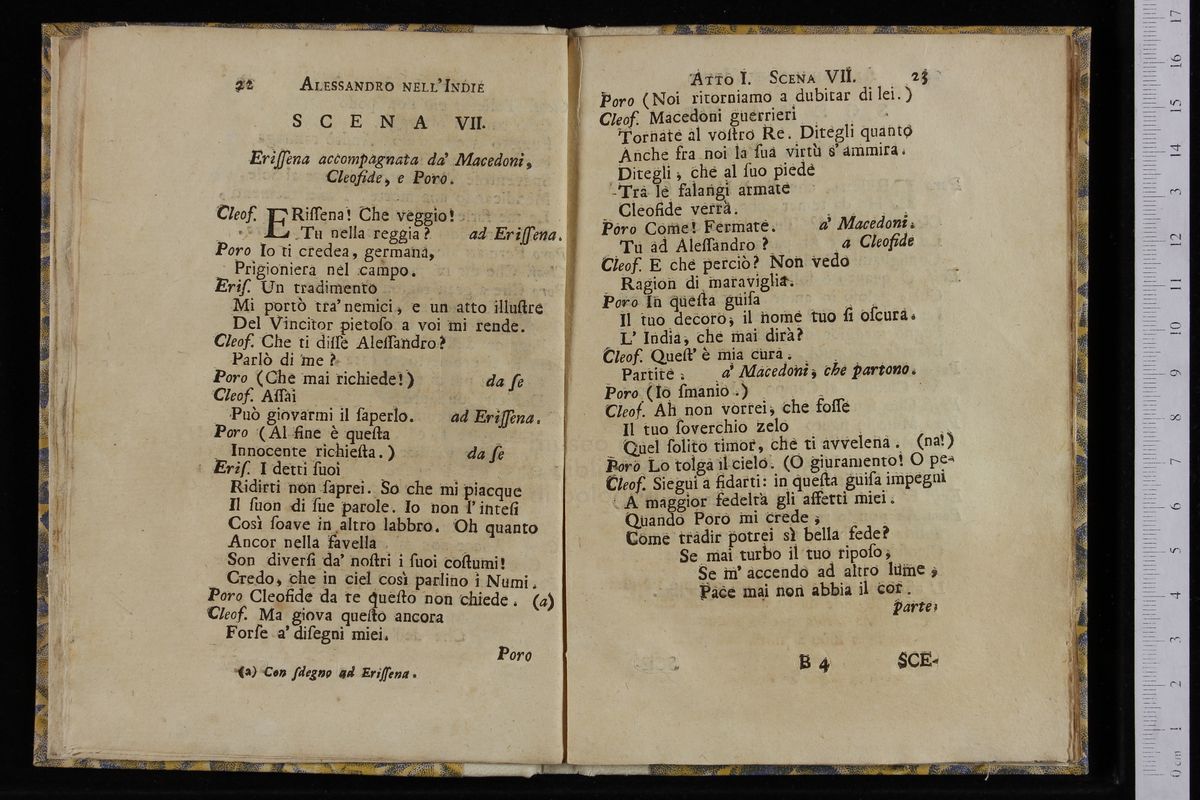 22 ALESSANDRO NELL'INDIE
SCENA VII.
Eriſſena accompagnata da' Macedoni,
Cleofide, e Poro.
Cleof. ERiſſena! Che veggio!
Tu nella reggia? ad Eriſſena.
Poro Io ti credea, germana,
Prigioniera nel campo.
Eriſ. Un tradimento
Mi portò tra' nemici, e un atto illuſtre
Del Vincitor pietoſo a voi mi rende.
Cleof. Che ti diſſe Aleſſandro?
Parlò di me?
Poro (Che mai richiede!) da ſe
Cleof. Aſſai
Può giovarmi il ſaperlo. ad Eriſſena.
Poro (Al fine è queſta
Innocente richieſta.) da ſe
Eriſ. I detti ſuoi
Ridirti non ſaprei. So che mi piacque
Il ſuon di ſue parole. Io non l'inteſi
Così ſoave in altro labbro. Oh quanto
Ancor nella favella
Son diverſi da' noſtri i ſuoi coſtumi!
Credo, che in ciel così parlino i Numi.
Poro Cleofide da te queſto non chiede. (a)
Cleof. Ma giova queſto ancora
Forſe a' diſegni miei.
Poro
(a) Con ſdegno ad Eriſſena.
ATTO I. SCENA VII. 23
Poro (Noi ritorniamo a dubitar di lei.)
Cleof. Macedoni guerrieri
Tornate al voſtro Re. Ditegli quanto
Anche fra noi la ſua virtù s'ammira.
Ditegli, che al ſuo piede
Tra le falangi armate
Cleofide verrà.
Poro Come! Fermate. a' Macedoni.
Tu ad Aleſſandro? a Cleofide
Cleof. E che perciò? Non vedo
Ragion di maraviglia.
Poro In queſta guiſa
Il tuo decoro, il nome tuo ſi oſcura.
L' India, che mai dirà?
Cleof. Queſt' è mia cura.
Partite. a' Macedoni, che partono.
Poro (Io ſmanio.)
Cleof. Ah non vorrei, che foſſe
Il tuo ſoverchio zelo
Quel ſolito timor, che ti avvelena. (na!)
Poro Lo tolga il cielo. (O giuramento! O pe-
Cleof. Siegui a fidarti: in queſta guiſa impegni
A maggior fedeltà gli affetti miei.
Quando Poro mi crede,
Come tradir potrei sì bella fede?
Se mai turbo il tuo ripoſo,
Se m' accendo ad altro lume,
Pace mai non abbia il cor.
parte.
B 4 SCE-
0 cm 1 2 3 4 5 6 7 8 9 10 11 12 13 14 15 16 17